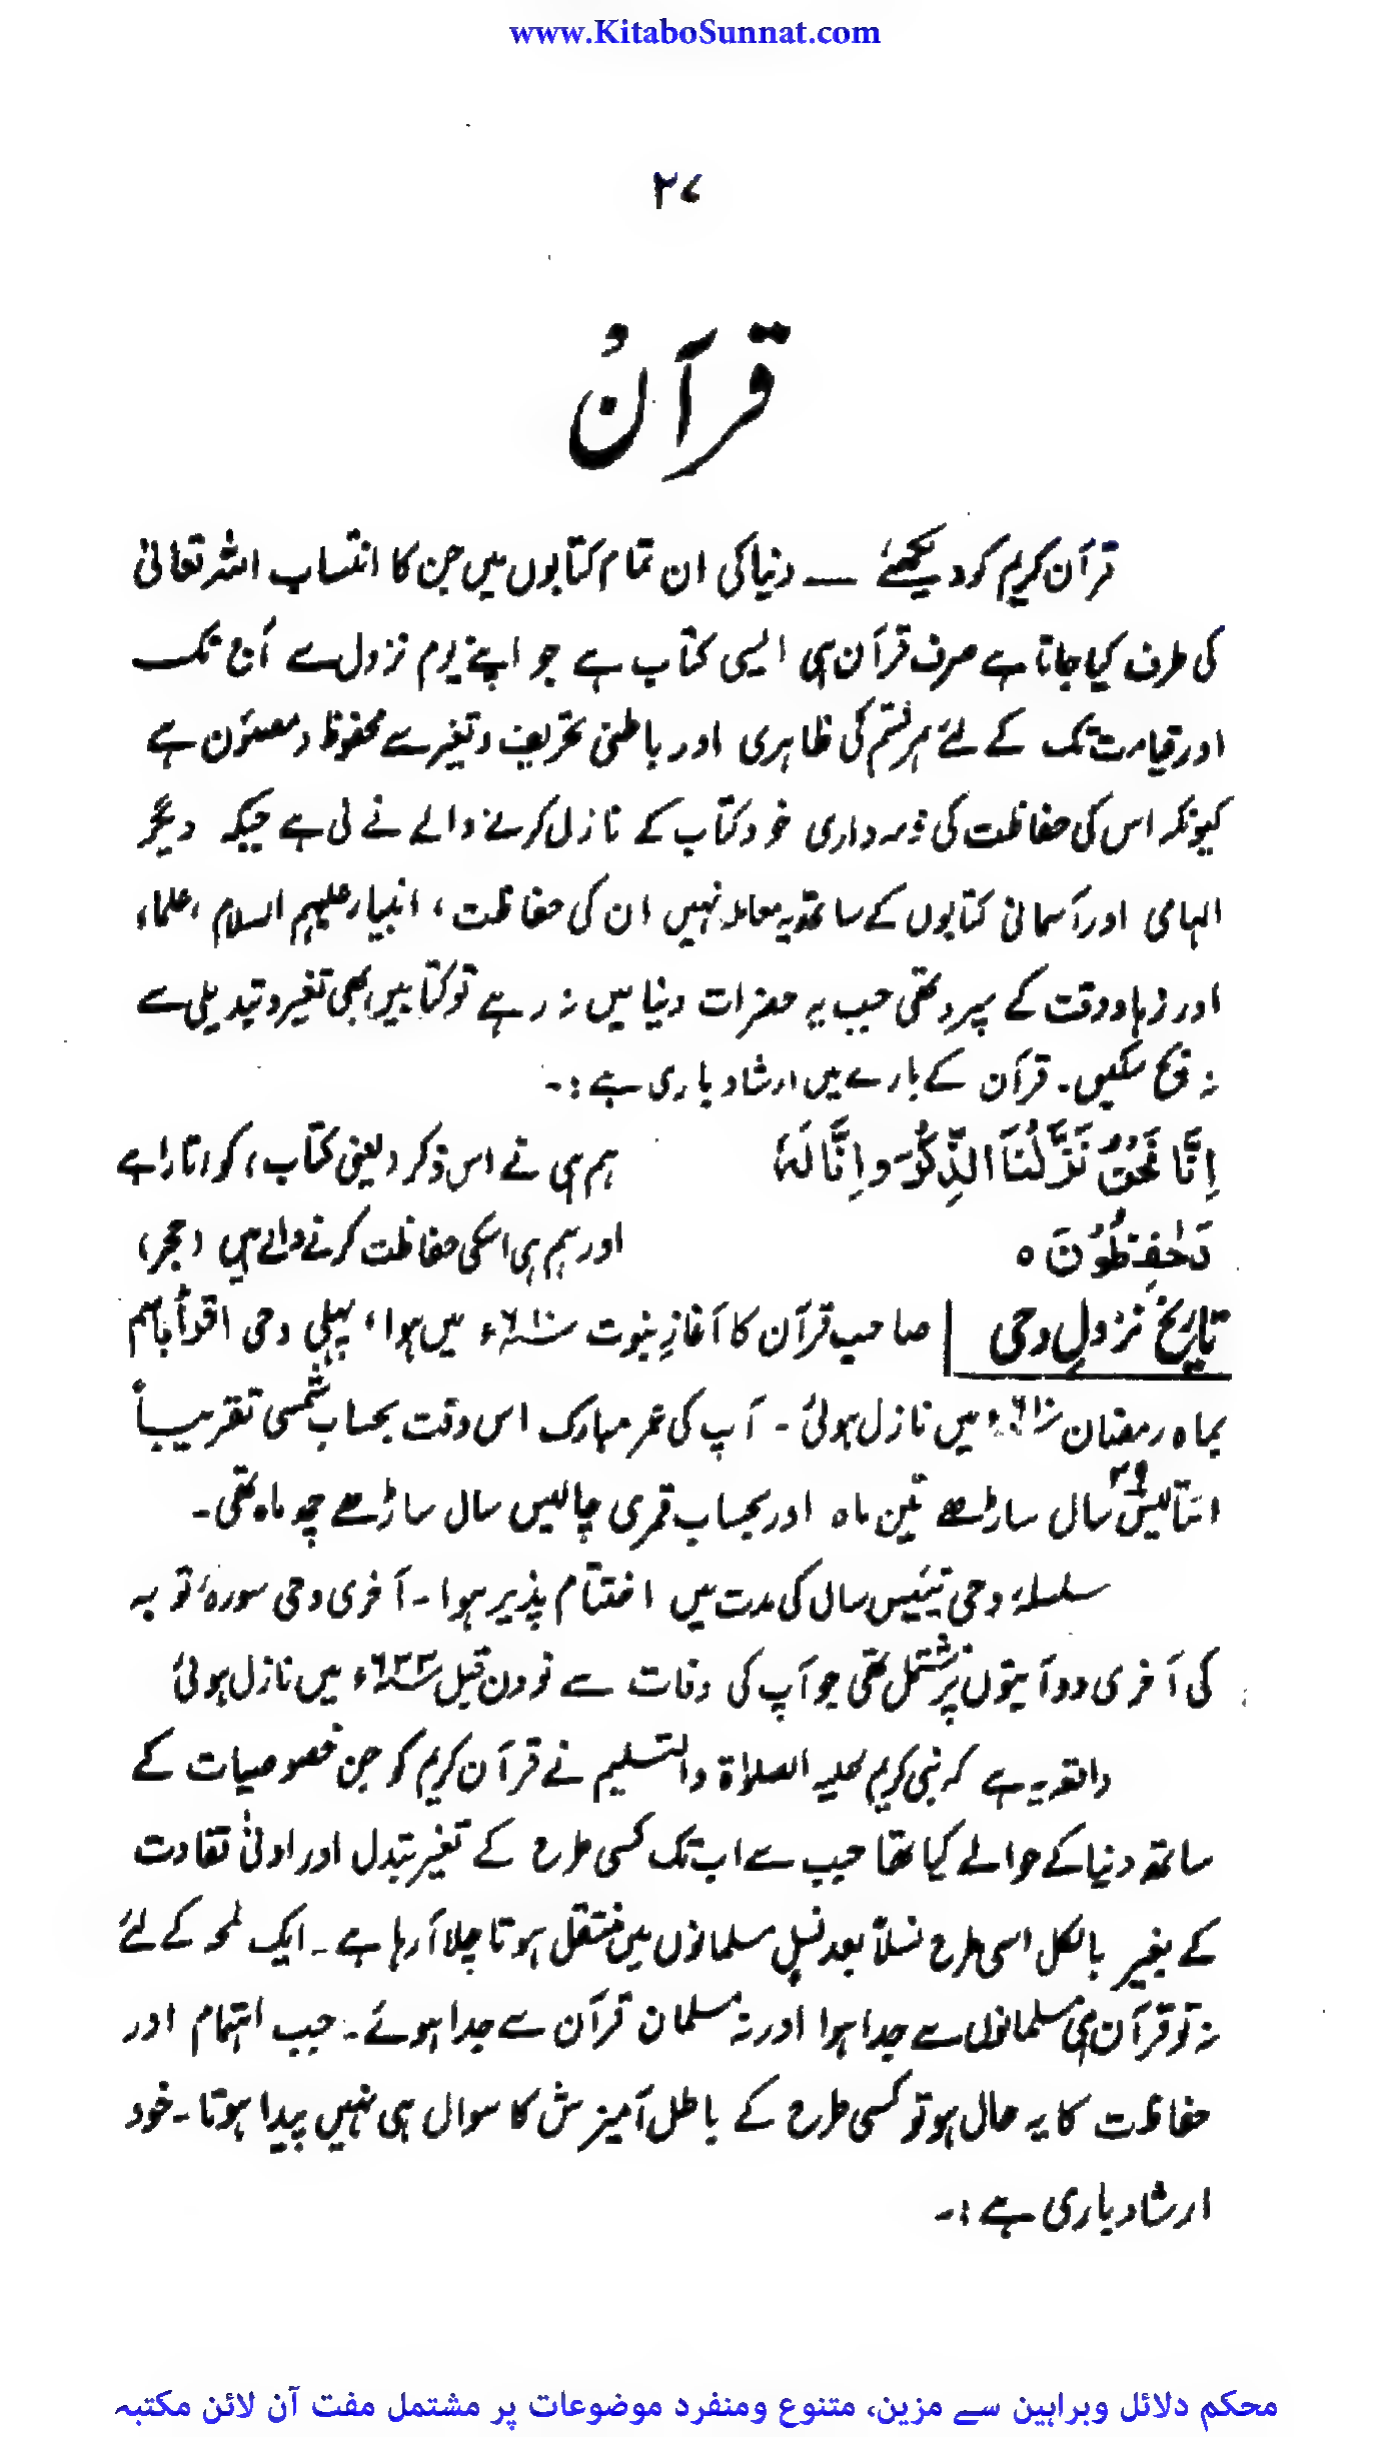 www.KitaboSunnat.com
۲۷
قرآنُ
قرآن کریم کو دیکھئے — دنیا کی ان تمام کتابوں میں جن کا انتساب اللہ تعالیٰ
کی طرف کیا جاتا ہے صرف قرآن ہی ایسی کتاب ہے جو اپنے یوم نزول سے آج تک
اور قیامت تک کے لئے ہر قسم کی ظاہری اور باطنی تحریف و تغیر سے محفوظ و مصئون ہے
کیونکہ اس کی حفاظت کی ذمہ داری خود کتاب کے نازل کرنے والے نے لی ہے جبکہ دیگر
الہامی اور آسمانی کتابوں کے ساتھ یہ معاملہ نہیں ان کی حفاظت، انبیاء علیہم السلام، علماء
اور زہاد وقت کے سپرد تھی جب یہ حضرات دنیا میں نہ رہے تو کتابیں بھی تغیر و تبدیلی سے
نہ بچ سکیں۔ قرآن کے بارے میں ارشاد باری ہے:۔
اِنَّا نَحْنُ نَزَّلْنَا الذِّكْرَ وَاِنَّا لَهٗ ہم ہی نے اس ذکر (یعنی کتاب) کو اتارا ہے
لَحٰفِظُوْنَ ه اور ہم ہی اسکی حفاظت کرنے والے ہیں (حجر)
تاریخ نزولِ وحی | صاحب قرآن کا آغازِ نبوت ۶۱۰ء میں ہوا، پہلی وحی اقرأ باسم
بماہ رمضان ۶۱۰ء میں نازل ہوئی ۔ آپ کی عمر مبارک اس وقت بحساب شمسی تقریباً
انتالیس ۳۹ سال ساڑھے تین ماہ اور بحساب قمری چالیس سال ساڑھے چھ ماہ تھی۔
سلسلۂ وحی تیئیس سال کی مدت میں اختتام پذیر ہوا ۔ آخری وحی سورۂ توبہ
کی آخری دو آیتوں پر مشتمل تھی جو آپ کی وفات سے نو دن قبل ۶۳۲ء میں نازل ہوئی
واقعہ یہ ہے کہ نبی کریم علیہ الصلاة والتسلیم نے قرآن کریم کو جن خصوصیات کے
ساتھ دنیا کے حوالے کیا تھا جب سے اب تک کسی طرح کے تغیر تبدل اور ادنیٰ تفاوت
کے بغیر بالکل اسی طرح نسلاً بعد نسلٍ مسلمانوں میں منتقل ہوتا چلا آ رہا ہے۔ ایک لمحہ کے لئے
نہ تو قرآن ہی مسلمانوں سے جدا ہوا اور نہ مسلمان قرآن سے جدا ہوئے۔ جب اہتمام اور
حفاظت کا یہ حال ہو تو کسی طرح کے باطل آمیزش کا سوال ہی نہیں پیدا ہوتا۔ خود
ارشاد باری ہے:۔
محکم دلائل وبراہین سے مزین، متنوع ومنفرد موضوعات پر مشتمل مفت آن لائن مکتبہ